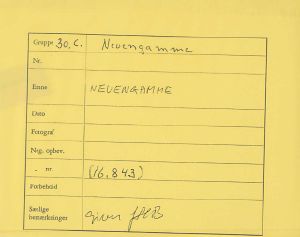 Gruppe 30. C. Neuengamme
Nr.
Emne NEUENGAMME
Dato
Fotograf
Neg. opbev.
„ nr. (16.843)
Forbehold
Særlige
bemærkninger